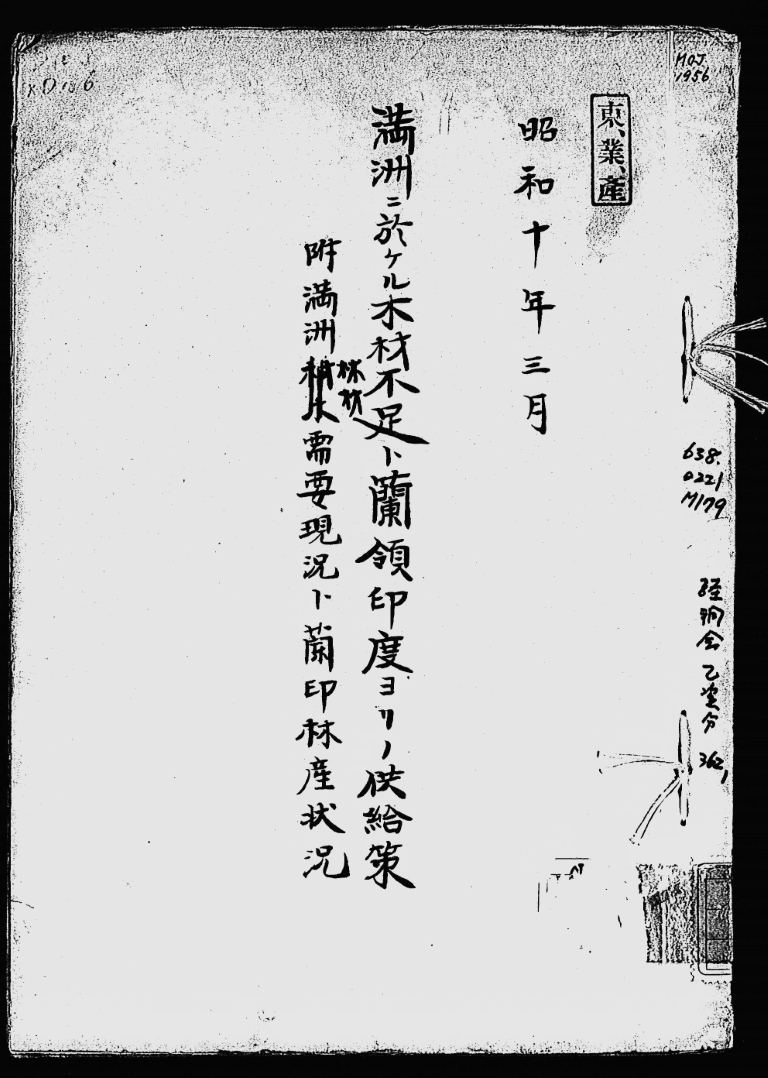 MOJ
1956
東、業、產
昭和十年三月
満洲ニ於ケル木材不足ト蘭領印度ヨリノ供給策
附満洲林材需要現況ト蘭印林産状況
638.
0221
M179
362